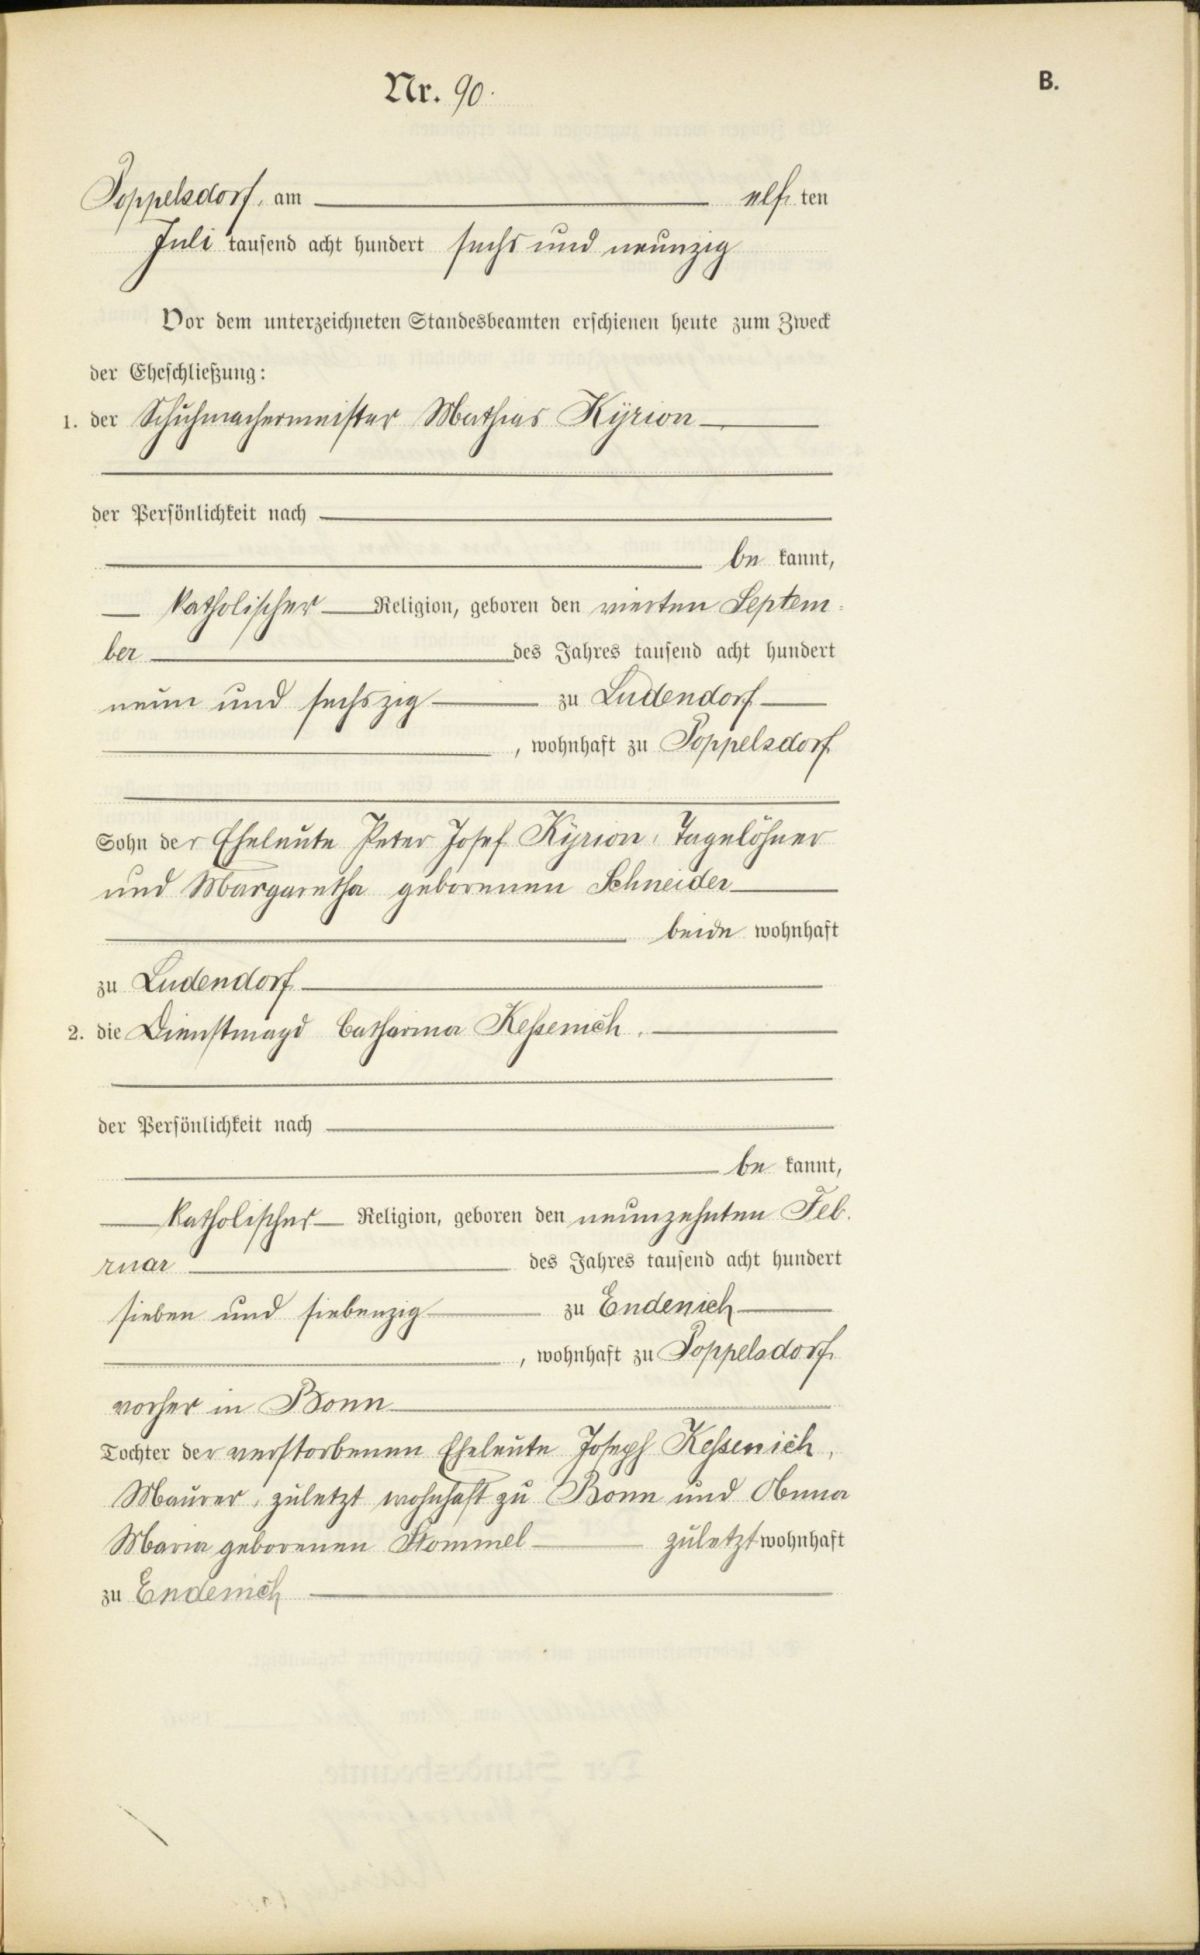 Nr. 90.
B.
Poppelsdorf, am elften
Juli tausend acht hundert sechs und neunzig
Vor dem unterzeichneten Standesbeamten erschienen heute zum Zweck
der Eheschließung:
1. der Schuhmachermeister Mathias Kÿrion
der Persönlichkeit nach
be kannt,
katholischer Religion, geboren den vierten Septem-
ber des Jahres tausend acht hundert
neun und sechszig zu Ludendorf
, wohnhaft zu Poppelsdorf
Sohn der Eheleute Peter Josef Kÿrion, Tagelöhner
und Margaretha geborenen Schneider
beide wohnhaft
zu Ludendorf
2. die Dienstmagd Catharina Keßenich.
der Persönlichkeit nach
be kannt,
katholischer Religion, geboren den neunzehnten Feb-
ruar des Jahres tausend acht hundert
sieben und siebenzig zu Endenich
, wohnhaft zu Poppelsdorf,
vorher in Bonn
Tochter der verstorbenen Eheleute Joseph Keßenich,
Maurer, zuletzt wohnhaft zu Bonn und Anna
Maria geborenen Stommel zuletzt wohnhaft
zu Endenich